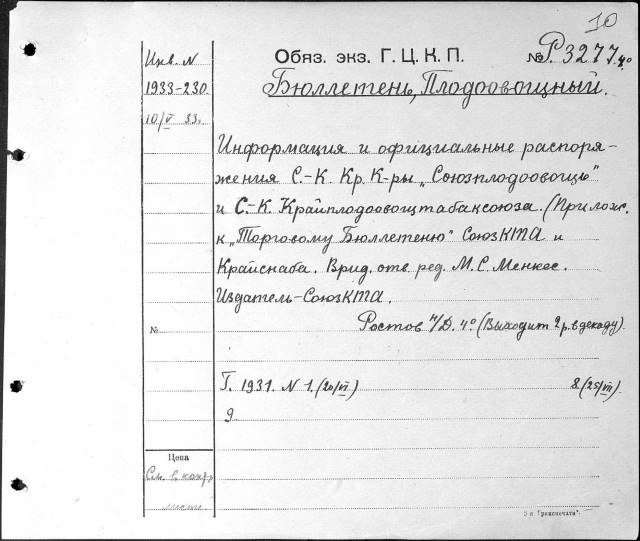 10
Инв. N
1933-230
10/V 33г.
Обяз. экз. Г. Ц. К. П.
№ Р.3277.4°
Бюллетень, Плодоовощный.
Информация и официальные распоря-
жения С.-К. Кр. К-ры „Союзплодоовощь"
и С.-К. Крайплодоовощтабаксоюза. (Прилож.
к „Торговому Бюллетеню" СоюзКТА и
Крайснаба. Врид. отв. ред. М. С. Менкес.
Издатель-СоюзКТА.
№
Ростов н/Д. 4° (Выходит 2 р. в декаду).
Г. 1931. N 1. (20/VI) 8. (25/VII).
9.
Цена
См. в